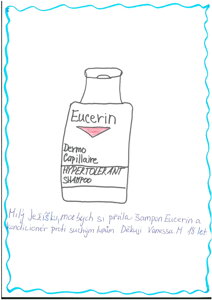 Eucerin
Dermo
Capillaire
HYPERTOLERANT
SHAMPOO
Milý Ježíšku, moc bych si přála šampon Eucerin a
kondicionér proti suchým vlasům Děkuji Vanessa. M 18 let